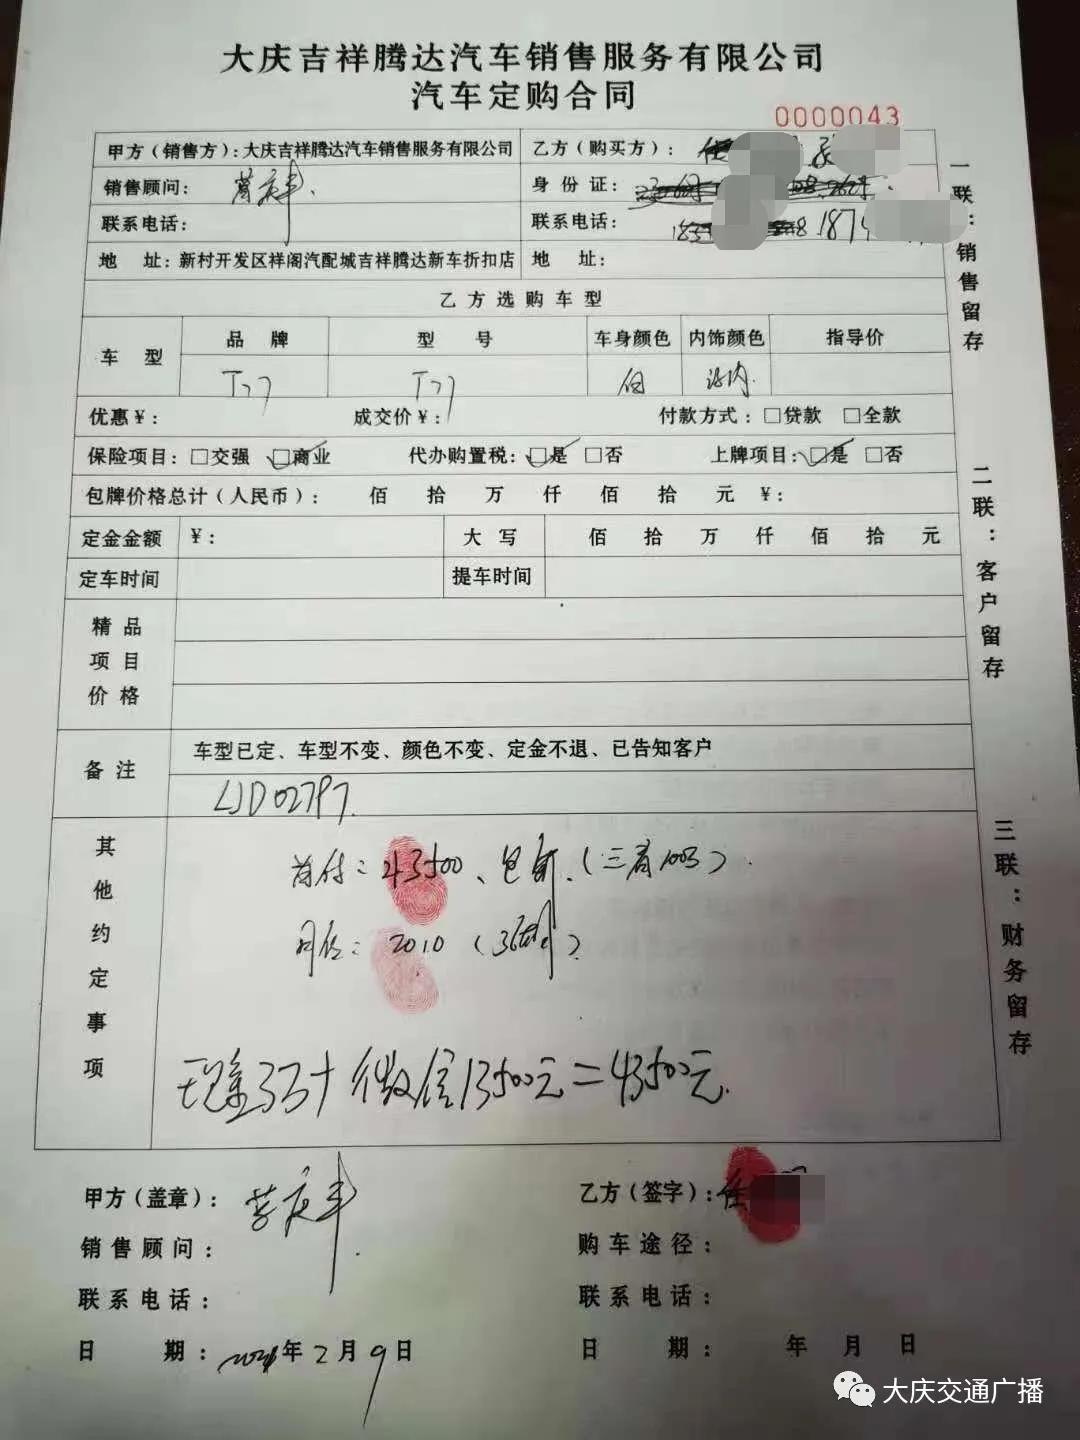 大庆吉祥腾达汽车销售服务有限公司
汽车定购合同
0000043
甲方（销售方）：大庆吉祥腾达汽车销售服务有限公司 乙方（购买方）：
销售顾问： 身份证：
联系电话： 联系电话： 187
地 址：新村开发区祥阁汽配城吉祥腾达新车折扣店 地 址：
乙方选购车型
车 型 品 牌 型 号 车身颜色 内饰颜色 指导价
T77 T77 白
优惠￥： 成交价￥： 付款方式：□贷款 □全款
保险项目：□交强 □商业 代办购置税：□是 □否 上牌项目：□是 □否
包牌价格总计（人民币）： 佰 拾 万 仟 佰 拾 元 ￥：
定金金额 ￥： 大 写 佰 拾 万 仟 佰 拾 元
定车时间 提车时间
精品
项目
价格
备注 车型已定、车型不变、颜色不变、定金不退、已告知客户
LJD02797
其他约定事项
首付：43500、包牌、（三者100万）
月供：2010（36期）
现金3万+微信13500元=43500元
甲方（盖章）： 乙方（签字）：任
销售顾问： 购车途径：
联系电话： 联系电话：
日 期：2021年2月9日 日 期： 年 月 日
一联：销售留存
二联：客户留存
三联：财务留存
大庆交通广播